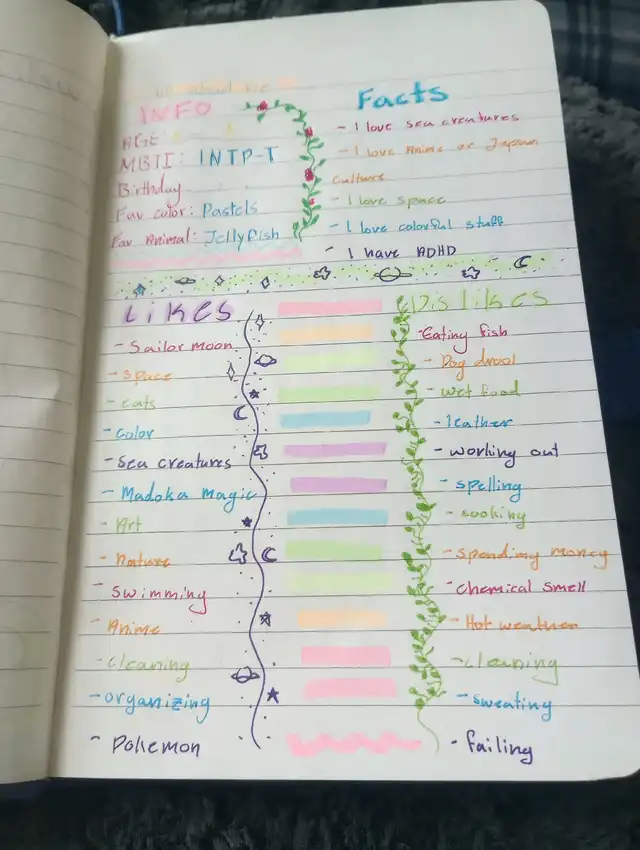 INFO
AGE
MBTI: INTP-T
Birthday
Fav color: Pastels
Fav Animal: Jellyfish
Facts
- I love sea creatures
- I love Anime or Japan
culture
- I love space
- I love colorful stuff
- I have ADHD
LiKES
- Sailor moon
- space
- cats
- color
- sea creatures
- Madoka magic
- Art
- Nature
- Swimming
- Anime
- cleaning
- organizing
- Pokemon
Dislikes
- Eating fish
- Dog drool
- wet food
- leather
- working out
- spelling
- sooking
- spending money
- chemical smell
- Hot weather
- cleaning
- sweating
- failing